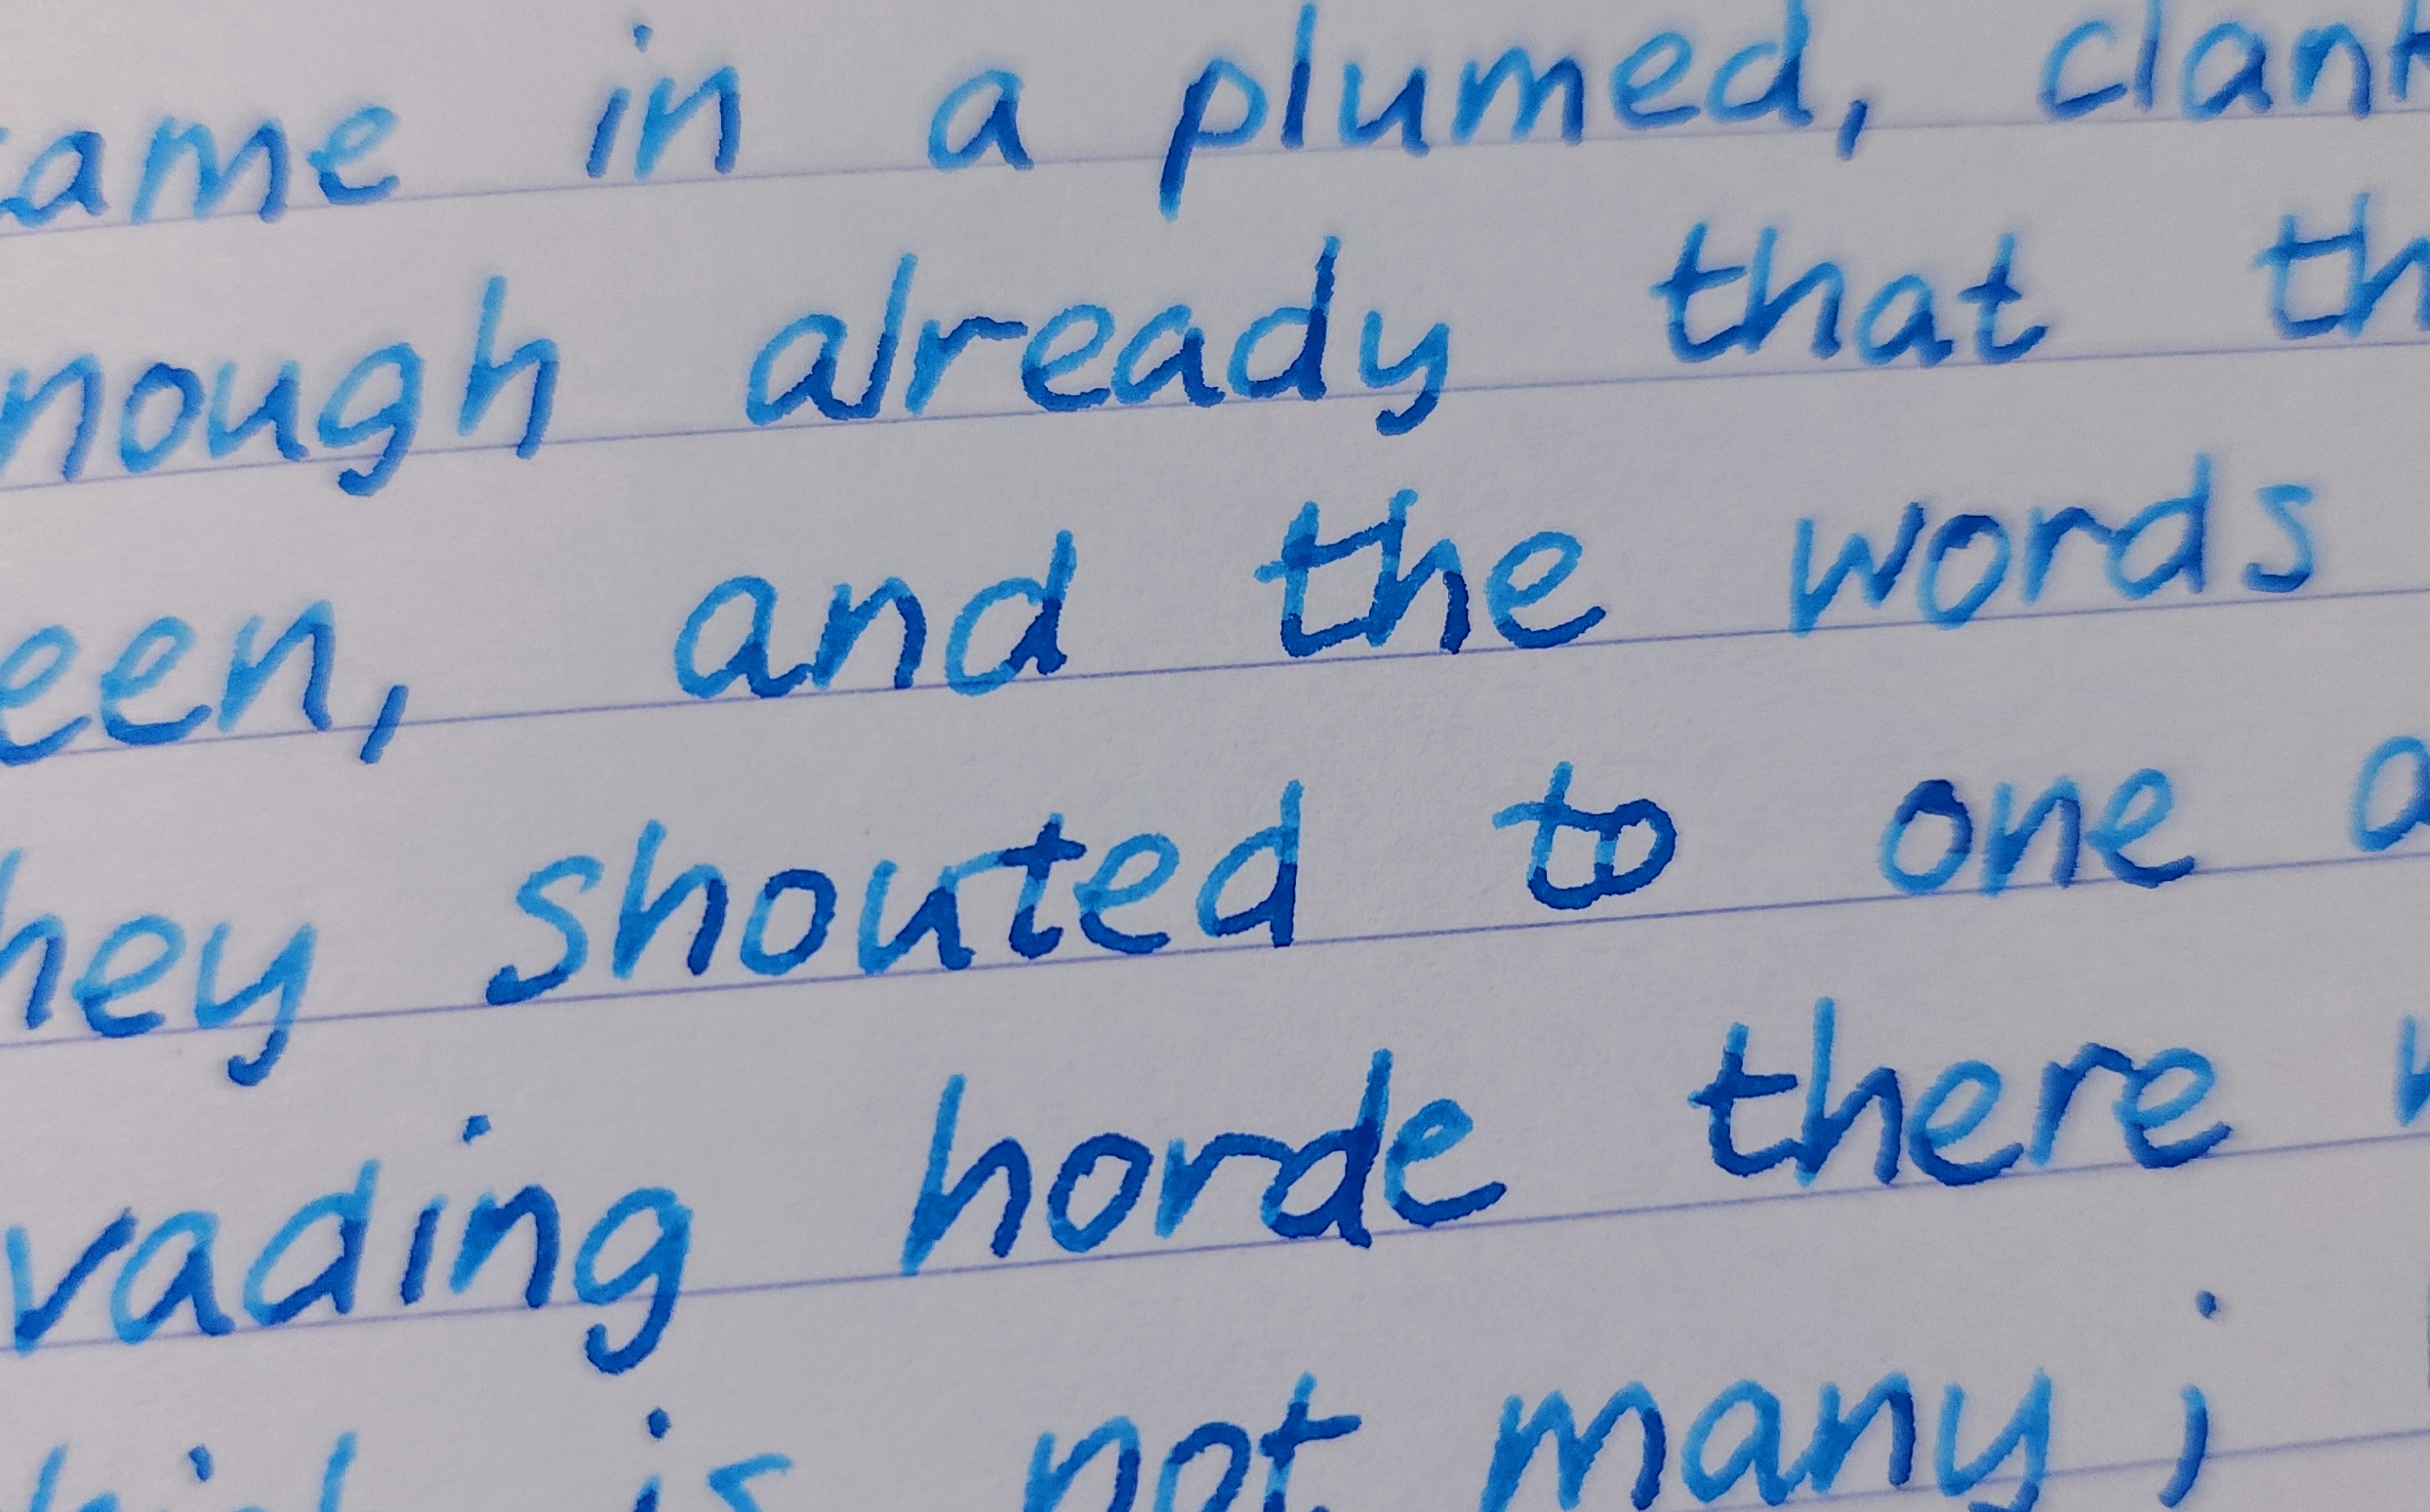 came in a plumed, clank
nough already that th
een, and the words
hey shouted to one a
vading horde there w
is not many;